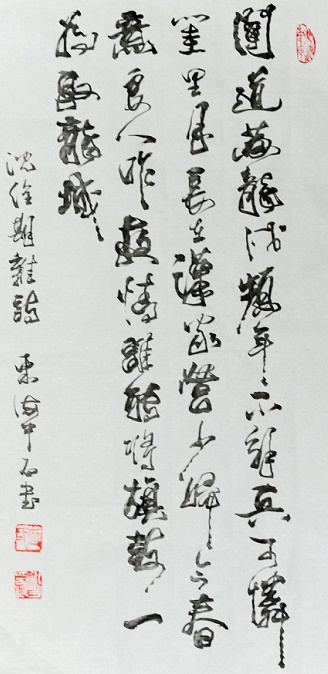 聞道黃龍戍頻年不解兵可憐
閨里月長在漢家營少婦今春
意良人昨夜情誰能將旗鼓一
為取龍城
沈佺期雜詩 東海中石书